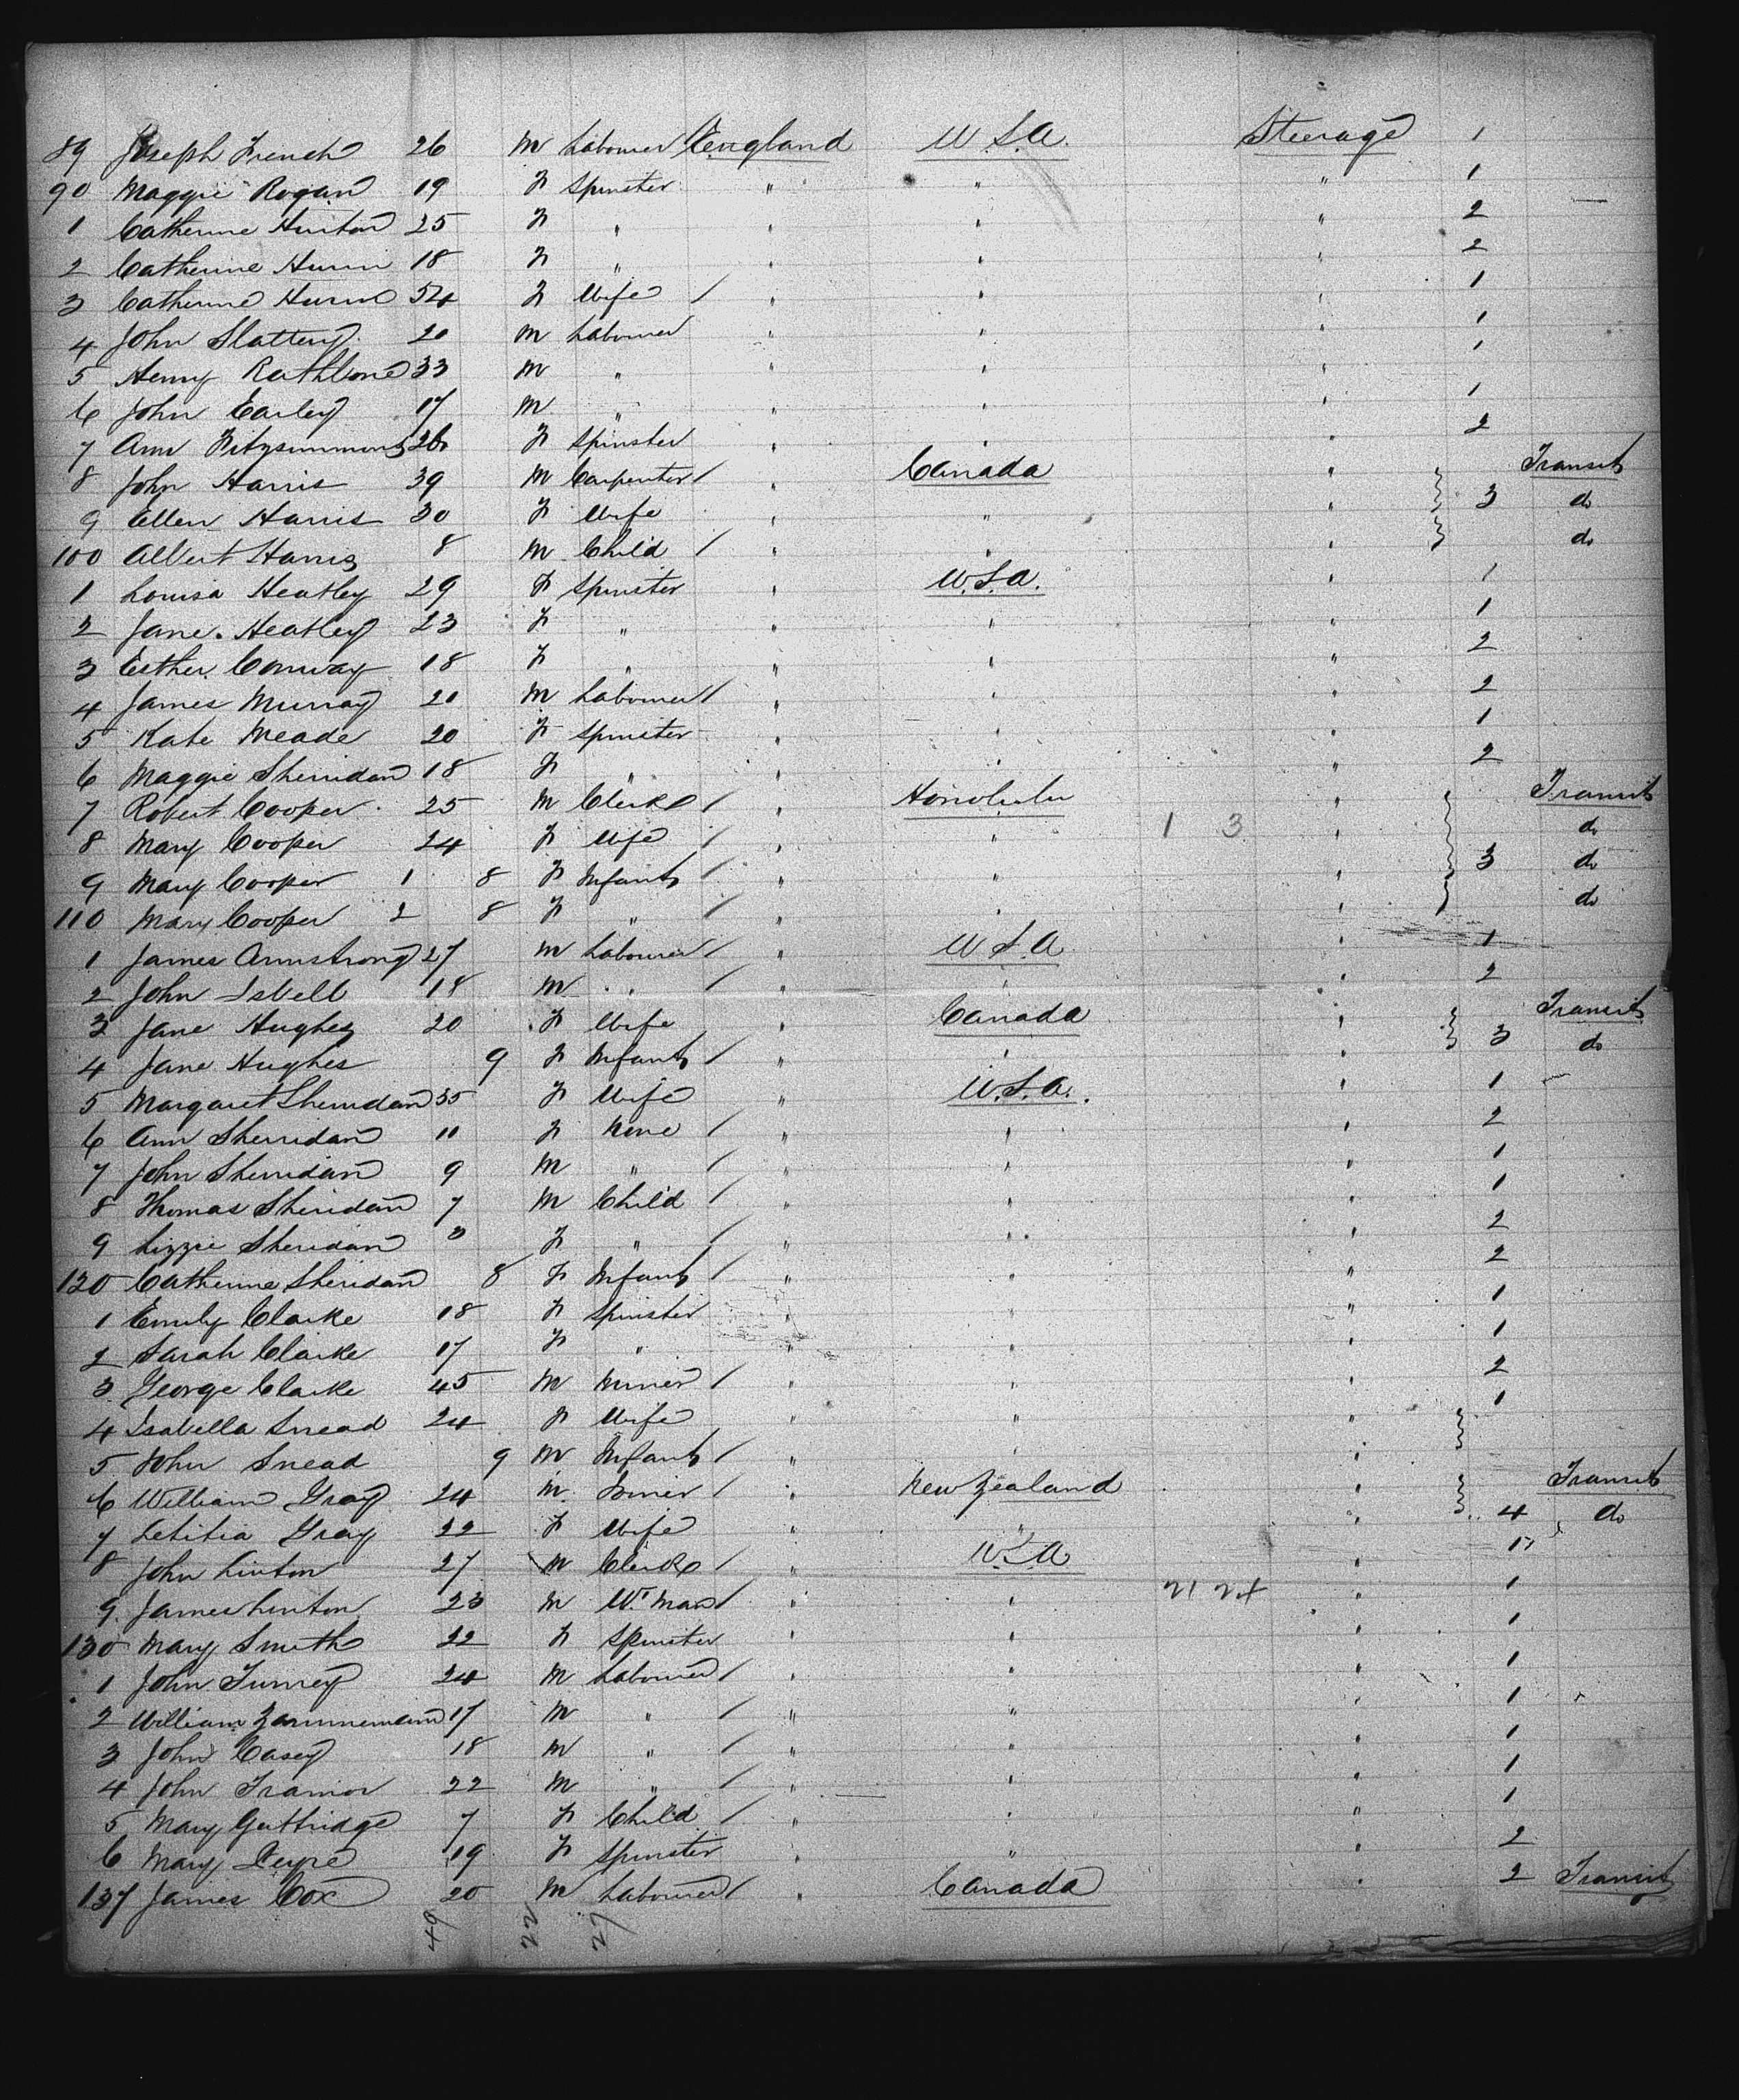 89 Joseph French 26 M Labourer England U.S.A. Steerage 1
90 Maggie Rogan 19 F Spinster " " " 1
1 Catherine Hinton 25 F " " " " 2
2 Catherine 18 F " " " " 2
3 Catherine 54 F Wife / " " " 1
4 John Slattery 20 M Labourer " " " 1
5 Henry Rathbone 33 M " " " " 1
6 John Earley 17 M " " " " 1
7 Ann Fitzsimmons 26 F Spinster " " " 2
8 John Harris 39 M Carpenter / " Canada " Transit
9 Ellen Harris 30 F Wife " " " 3 do
100 Albert Harris 8 M Child / " " " do
1 Louisa Heatley 29 F Spinster " U.S.A. " 1
2 Jane Heatley 23 F " " " " 1
3 Esther Conway 18 F " " " " 2
4 James Murray 20 M Labourer / " " " 2
5 Kate Meade 20 F Spinster " " " 1
6 Maggie Sherridan 18 F " " " " 2
7 Robert Cooper 25 M Clerk / " Honolulu " Transit
8 Mary Cooper 24 F Wife / " " 1 3 " do
9 Mary Cooper 1 8 F Infant / " " " 3 do
110 Mary Cooper 2 8 F " / " " " do
1 James Armstrong 27 M Labourer / " U.S.A. " 1
2 John Isbell 18 M " / " " " 2
3 Jane Hughes 20 F Wife " Canada " 3 Transit
4 Jane Hughes 9 F Infant / " " " do
5 Margaret Sherridan 35 F Wife " U.S.A. " 1
6 Ann Sherridan 11 F None / " " " 2
7 John Sherridan 9 M " / " " " 1
8 Thomas Sheridan 7 M Child / " " " 1
9 Lizzie Sheridan 3 F " / " " " 2
120 Catherine Sheridan 8 F Infant / " " " 2
1 Emily Clarke 18 F Spinster " " " 1
2 Sarah Clarke 17 F " " " " 1
3 George Clarke 45 M Miner / " " " 2
4 Isabella Snead 24 F Wife " " " 1
5 John Snead 9 M Infant / " " "
6 William Gray 24 M Joiner / " New Zealand " Transit
7 Letitia Gray 22 F Wife " " " 4 do
8 John Linton 27 M Clerk / " U.S.A " 1
9 James Linton 23 M / " " 21 24 " 1
130 Mary Smith 22 F Spinster " " " 1
1 John 24 M Labourer / " " " 1
2 William 17 M " / " " " 1
3 John Casey 18 M " / " " " 1
4 John Trainor 22 M " / " " " 1
5 Mary Guttridge 7 F Child / " " " 1
6 Mary 19 F Spinster " " " 2
137 James Cox 20 M Labourer / " Canada " 2 Transit
49 22 27